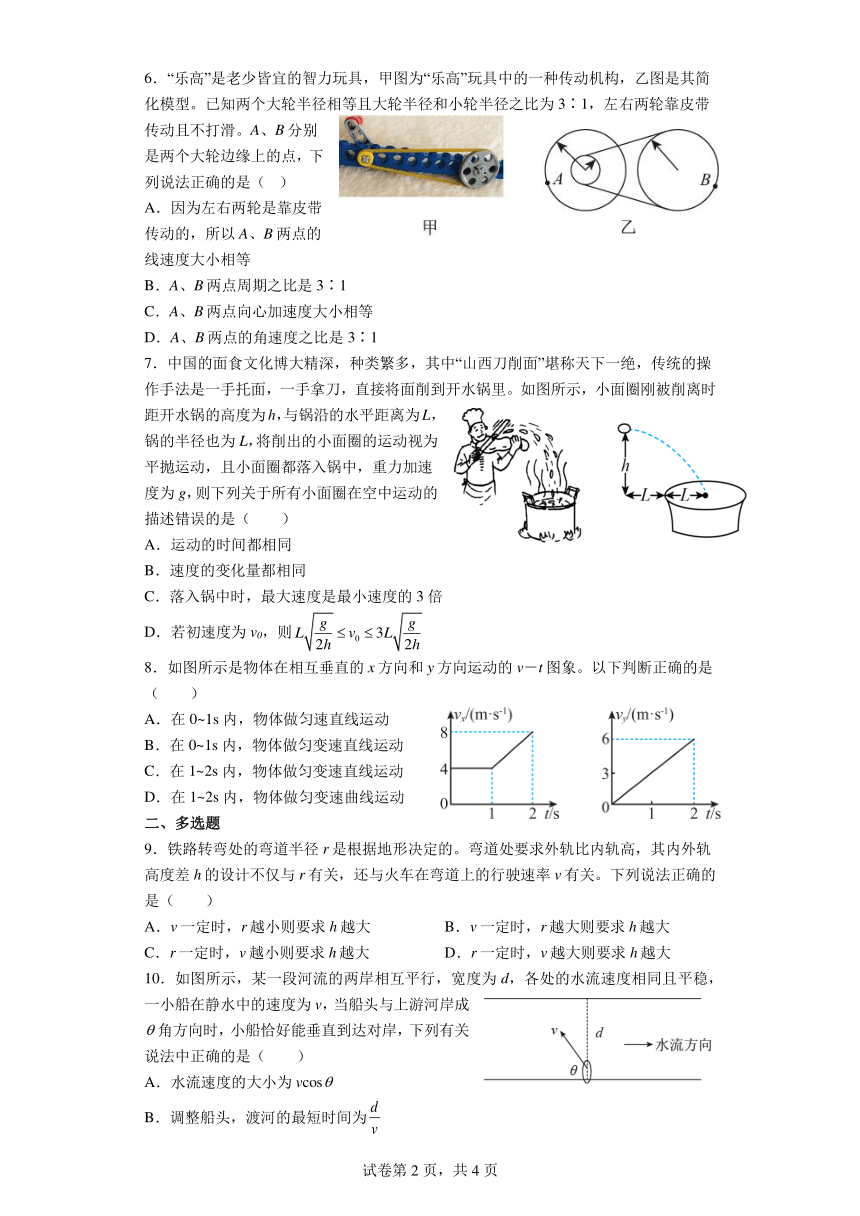 6．“乐高”是老少皆宜的智力玩具，甲图为“乐高”玩具中的一种传动机构，乙图是其简
化模型。已知两个大轮半径相等且大轮半径和小轮半径之比为 3∶1，左右两轮靠皮带
传动且不打滑。A、B 分别
是两个大轮边缘上的点，下
列说法正确的是（ ）
A
B
甲
乙
A．因为左右两轮是靠皮带
传动的，所以 A、B 两点的
线速度大小相等
B．A、B 两点周期之比是 3∶1
C．A、B 两点向心加速度大小相等
D．A、B 两点的角速度之比是 3∶1
7．中国的面食文化博大精深，种类繁多，其中“山西刀削面”堪称天下一绝，传统的操
作手法是一手托面，一手拿刀，直接将面削到开水锅里。如图所示，小面圈刚被削离时
距开水锅的高度为 h，与锅沿的水平距离为 L，
锅的半径也为 L，将削出的小面圈的运动视为
平抛运动，且小面圈都落入锅中，重力加速
度为 g，则下列关于所有小面圈在空中运动的
描述错误的是（ ）
h
L
L
A．运动的时间都相同
B．速度的变化量都相同
C．落入锅中时，最大速度是最小速度的 3 倍
D．若初速度为 v₀，则 L√(g/2h) ≤ v₀ ≤ 3L√(g/2h)
8．如图所示是物体在相互垂直的 x 方向和 y 方向运动的 v－t 图象。以下判断正确的是
（ ）
A．在 0~1s 内，物体做匀速直线运动
B．在 0~1s 内，物体做匀变速直线运动
C．在 1~2s 内，物体做匀变速直线运动
D．在 1~2s 内，物体做匀变速曲线运动
vₓ/(m·s⁻¹)
8
4
0
1
2
t/s
vᵧ/(m·s⁻¹)
6
3
0
1
2
t/s
二、多选题
9．铁路转弯处的弯道半径 r 是根据地形决定的。弯道处要求外轨比内轨高，其内外轨
高度差 h 的设计不仅与 r 有关，还与火车在弯道上的行驶速率 v 有关。下列说法正确的
是（ ）
A．v 一定时，r 越小则要求 h 越大 B．v 一定时，r 越大则要求 h 越大
C．r 一定时，v 越小则要求 h 越大 D．r 一定时，v 越大则要求 h 越大
10．如图所示，某一段河流的两岸相互平行，宽度为 d，各处的水流速度相同且平稳，
一小船在静水中的速度为 v，当船头与上游河岸成
θ 角方向时，小船恰好能垂直到达对岸，下列有关
说法中正确的是（ ）
v
d
水流方向
θ
A．水流速度的大小为 vcosθ
B．调整船头，渡河的最短时间为 d/v
试卷第 2 页，共 4 页